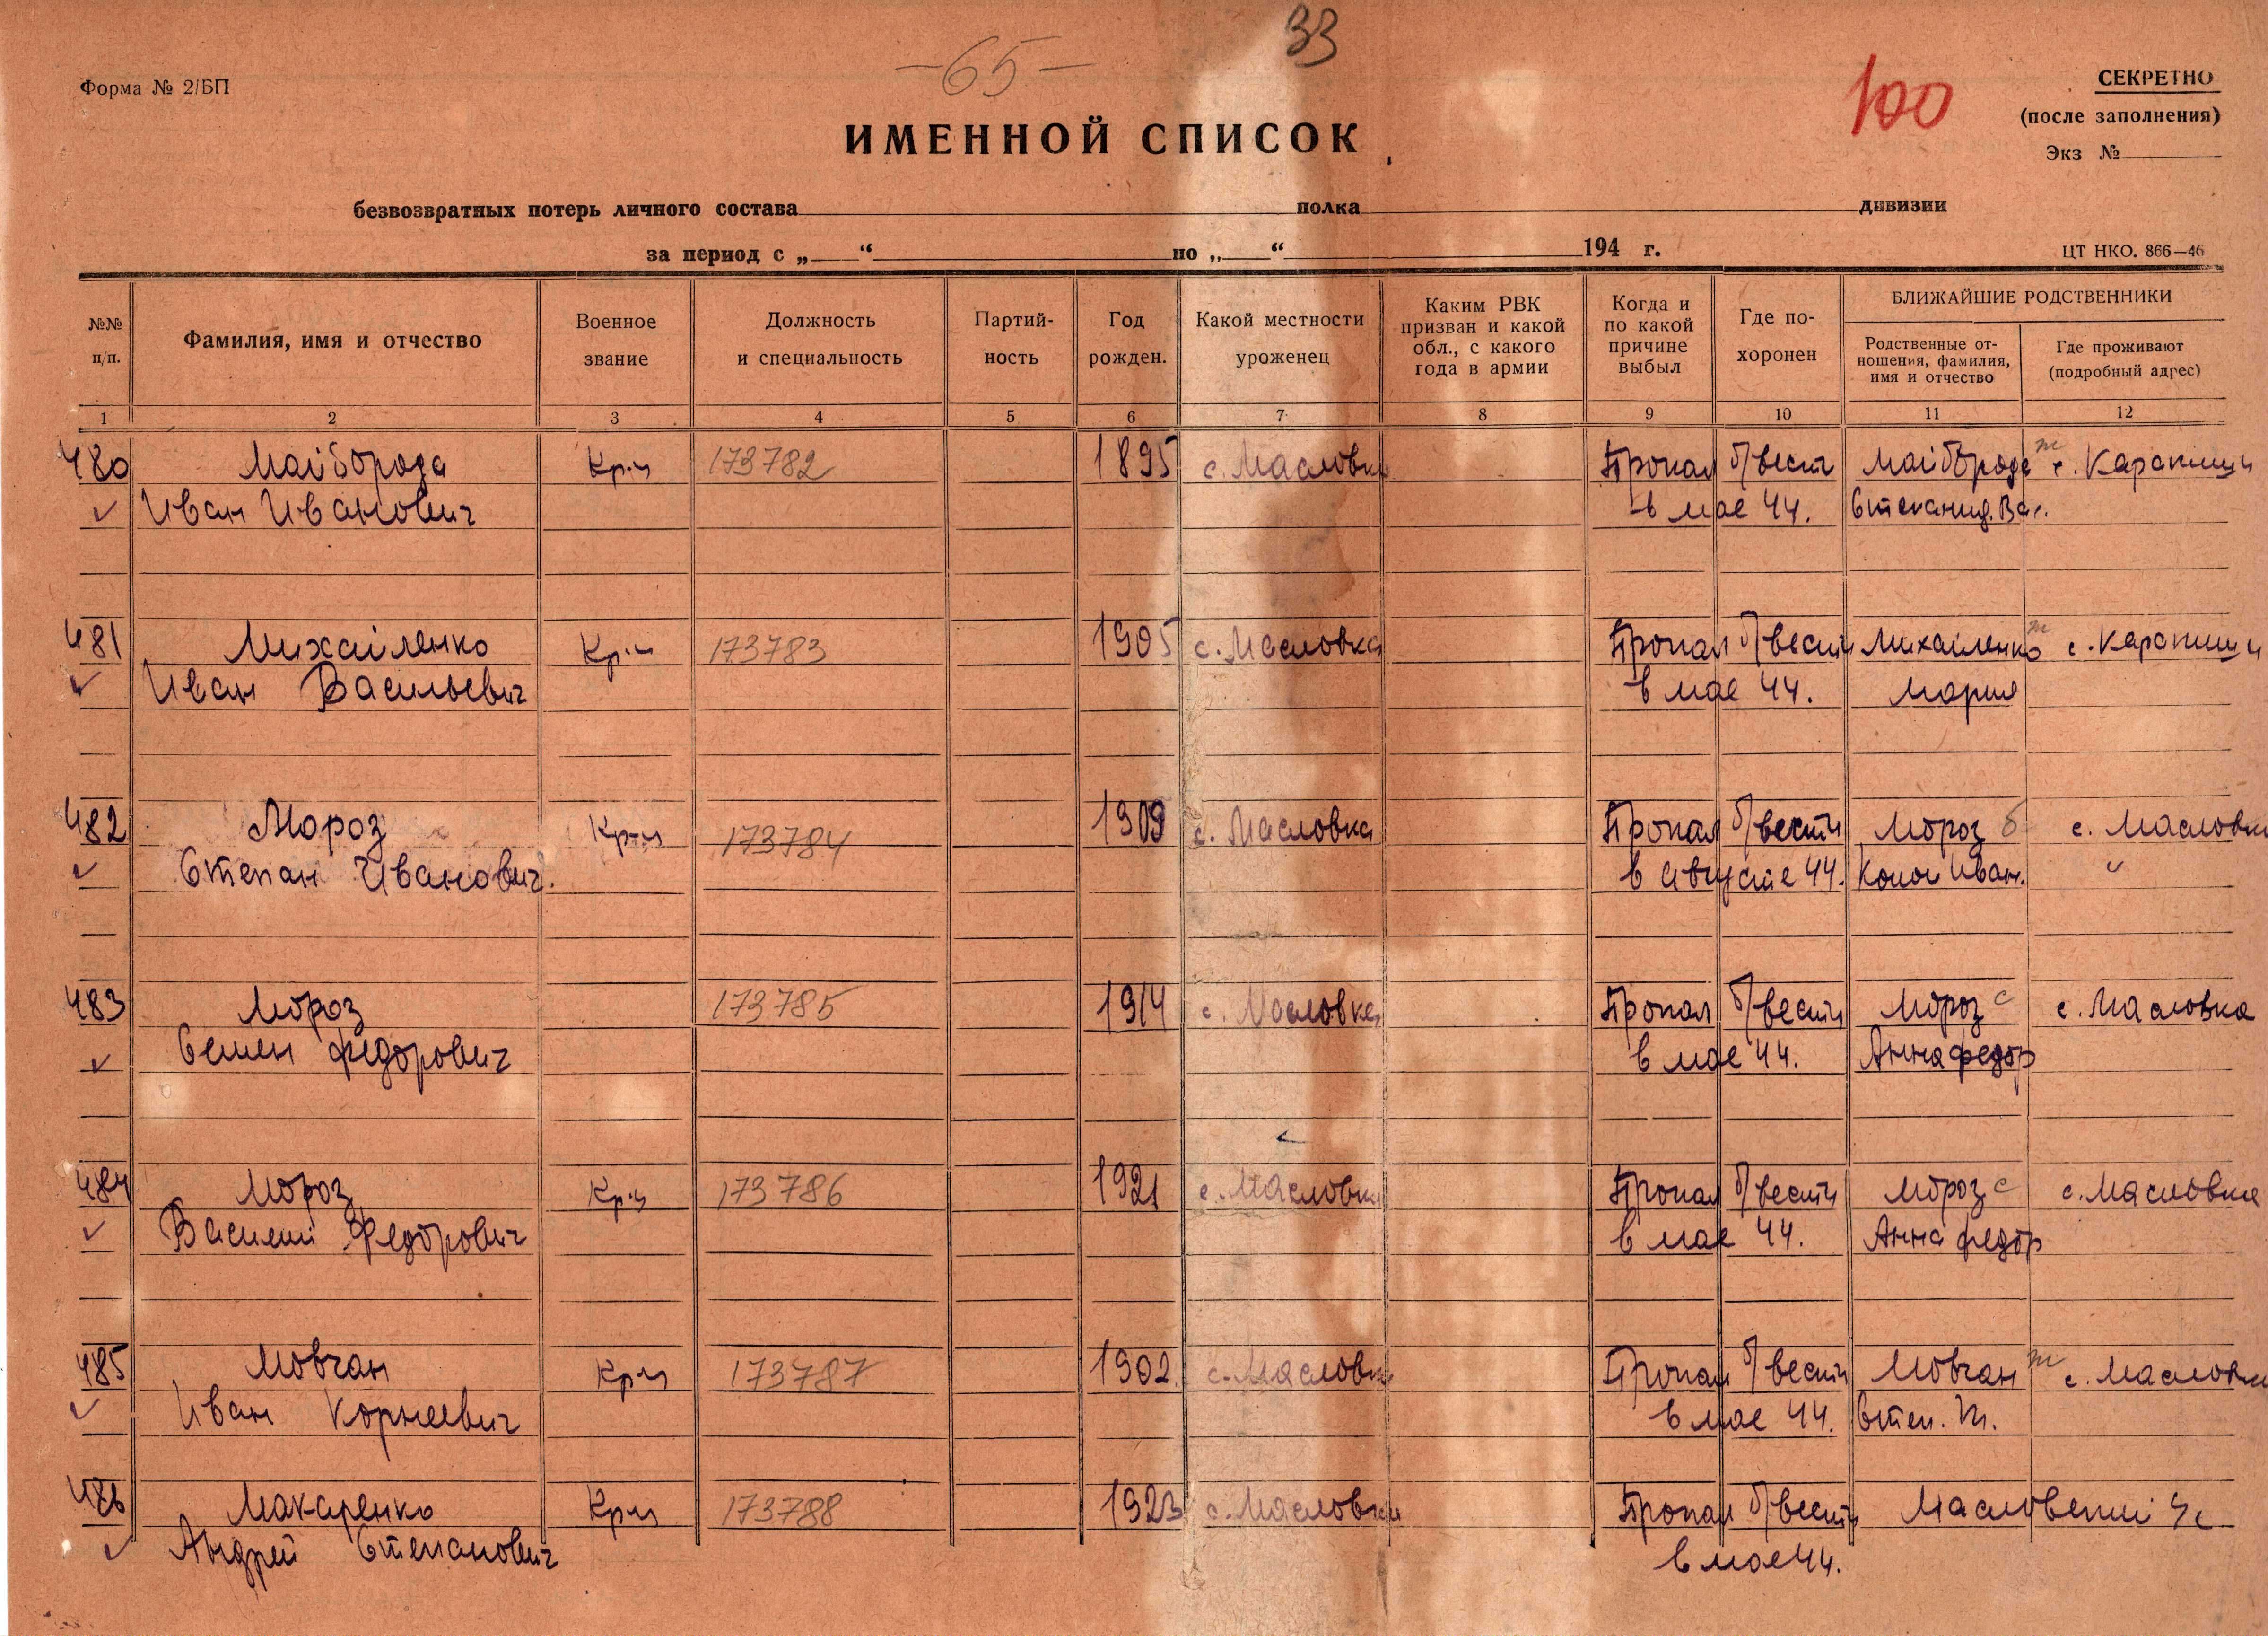 33
-65-
100
Форма № 2/БП
СЕКРЕТНО
(после заполнения)
Экз №
ИМЕННОЙ СПИСОК
безвозвратных потерь личного состава полка дивизии
за период с „ “ по „ “ 194 г.
ЦТ НКО. 866—46
№№ п/п.
Фамилия, имя и отчество
Военное звание
Должность и специальность
Партий-ность
Год рожден.
Какой местности уроженец
Каким РВК призван и какой обл., с какого года в армии
Когда и по какой причине выбыл
Где по-хоронен
БЛИЖАЙШИЕ РОДСТВЕННИКИ
Родственные от-ношения, фамилия, имя и отчество
Где проживают (подробный адрес)
1 2 3 4 5 6 7 8 9 10 11 12
480 Майборода Кр-ц 173782 1895 с. Масловка Пропал б/вести Майборода ж с. Карапиши
Иван Иванович в мае 44. Степанид. Вас.
481 Михайленко Кр-ц 173783 1905 с. Масловка Пропал б/вести Михайленко ж с. Карапиши
Иван Васильевич в мае 44. Мария
482 Мороз Кр-ц 173784 1909 с. Масловка Пропал б/вести Мороз б с. Масловка
Степан Иванович. в августе 44. Иван.
483 Мороз 173785 1914 с. Масловка Пропал б/вести Мороз с с. Масловка
Семен Федорович в мае 44. Анна Федор
484 Мороз Кр-ц 173786 1921 с. Масловка Пропал б/вести Мороз с с. Масловка
Василий Федорович в мае 44. Анна Федор
485 Мовчан Кр-ц 173787 1902 с. Масловка Пропал б/вести Мовчан ж с. Масловка
Иван Корнеевич в мае 44. Степ.
486 Макаренко Кр-ц 173788 1923 с. Масловка Пропал б/вести Масловский
Андрей Степанович в мае 44.